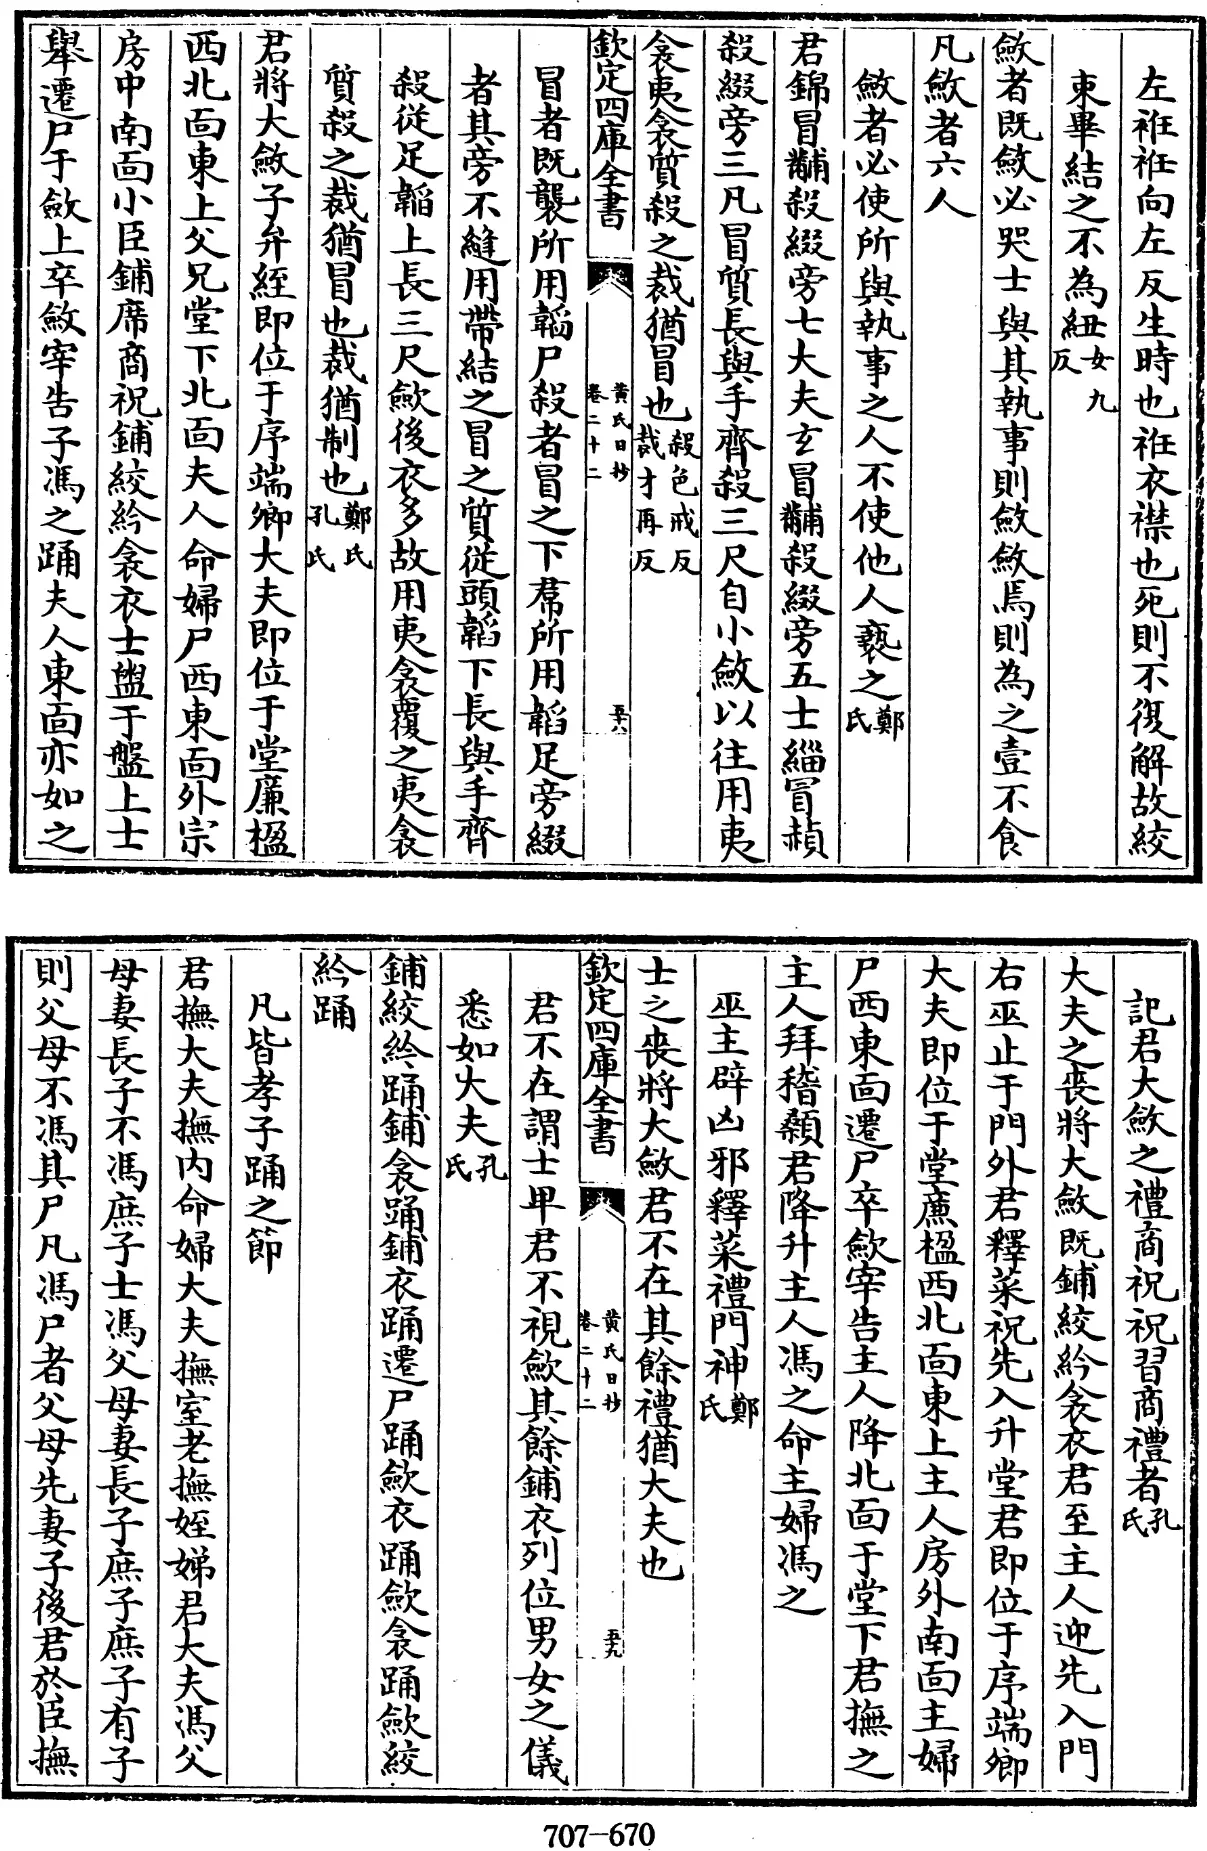 左衽衽向左反生時也衽衣襟也死則不復解故絞
束畢結之不為紐女九反
斂者既斂必哭士與其執事則斂斂焉則為之壹不食
凡斂者六人
斂者必使所與執事之人不使他人褻之鄭氏
君錦冒黼殺綴旁七大夫玄冒黼殺綴旁五士緇冒赬
殺綴旁三凡冒質長與手齊殺三尺自小斂以往用夷
衾夷衾質殺之裁猶冒也殺色戒反裁才再反
欽定四庫全書
黄氏日抄卷二十二
五十八
冒者既襲所用韜尸殺者冒之下帬所用韜足旁綴
者其旁不縫用帶結之冒之質從頭韜下長與手齊
殺從足韜上長三尺歛後衣多故用夷衾覆之夷衾
質殺之裁猶冒也裁猶制也鄭氏孔氏
君將大斂子弁絰即位于序端卿大夫即位于堂廉楹
西北面東上父兄堂下北面夫人命婦尸西東面外宗
房中南面小臣鋪席商祝鋪絞紟衾衣士盥于盤上士
舉遷尸于斂上卒斂宰告子馮之踊夫人東面亦如之
記君大斂之禮商祝祝習商禮者孔氏
大夫之喪將大斂既鋪絞紟衾衣君至主人迎先入門
右巫止于門外君釋菜祝先入升堂君即位于序端卿
大夫即位于堂廉楹西北面東上主人房外南面主婦
尸西東面遷尸卒歛宰告主人降北面于堂下君撫之
主人拜稽顙君降升主人馮之命主婦馮之
巫主辟凶邪釋菜禮門神鄭氏
士之喪將大斂君不在其餘禮猶大夫也
欽定四庫全書
黄氏日抄卷二十二
五十九
君不在謂士卑君不視歛其餘鋪衣列位男女之儀
悉如大夫孔氏
鋪絞紟踊鋪衾踊鋪衣踊遷尸踊歛衣踊歛衾踊歛絞
紟踊
凡皆孝子踊之節
君撫大夫撫内命婦大夫撫室老撫姪娣君大夫馮父
母妻長子不馮庶子士馮父母妻長子庶子庶子有子
則父母不馮其尸凡馮尸者父母先妻子後君於臣撫
707-670